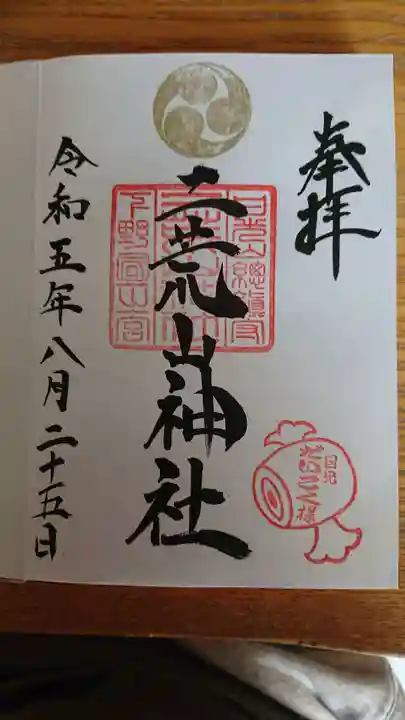 奉拝
二荒山神社
日光山總鎮守
下野國一之宮
日光
だいこく様
令和五年八月二十五日